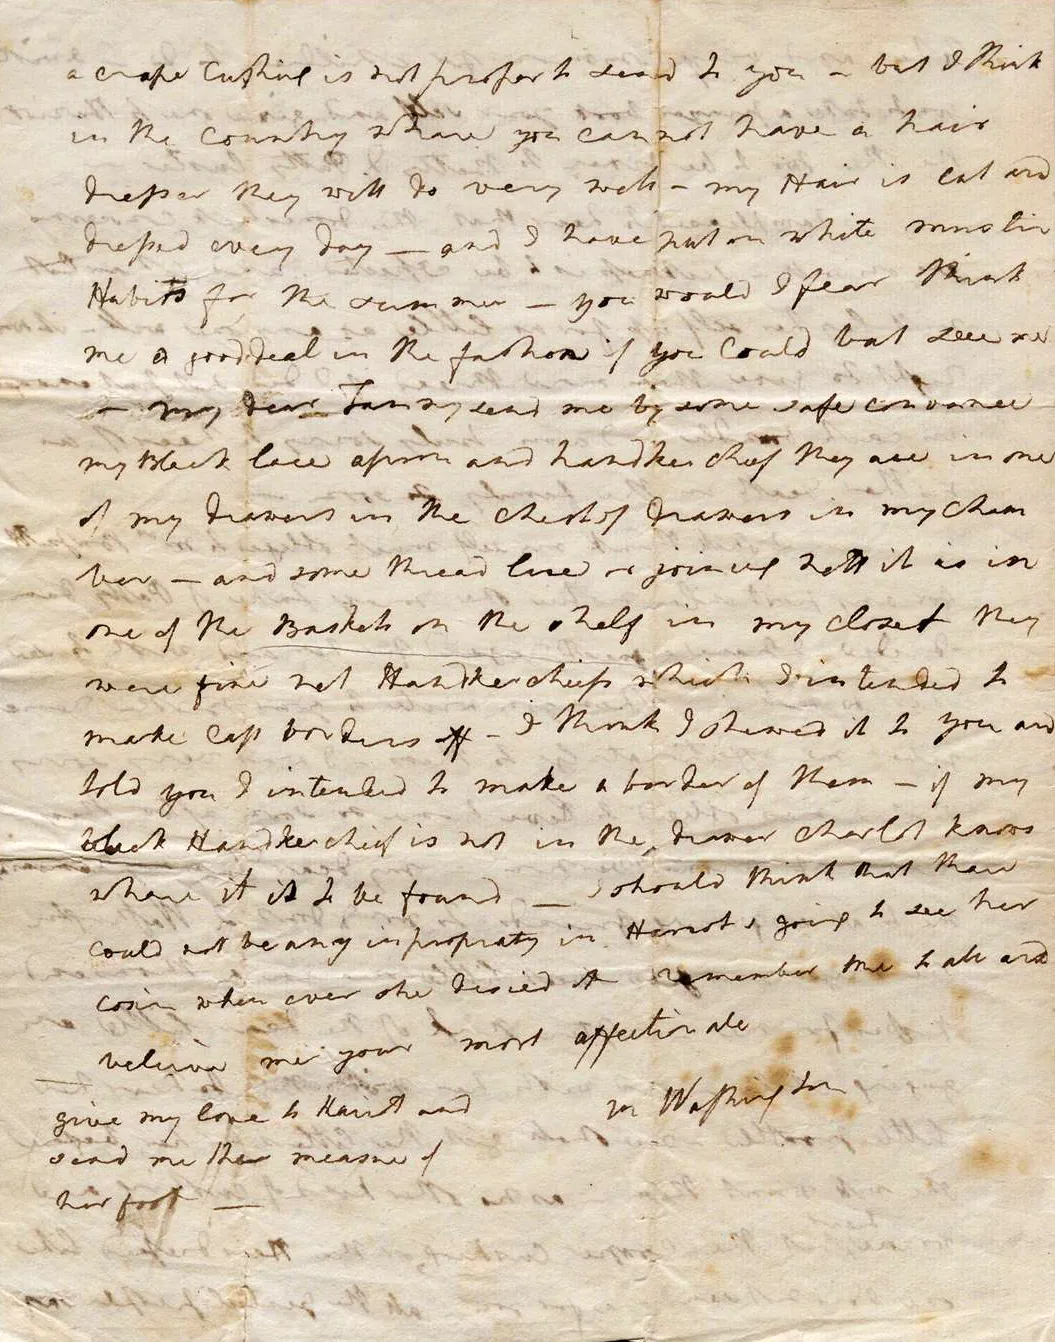 a crape Cushing is not proper to send to you – but I think
in the country whare you cannot have a hair
dresser they will do very well – my Hair is cut and
dressed every day – and I have put on white muslin
Habits for the summer – you would I fear think
me a good deal in the fashon if you could but see me
– my dear Fanny send me by some safe convance
my Black lace apron and handkerchief they are in one
of my drawers in the chest of drawers in my cham
ber – and some thread lace or joining nett it is in
one of the Baskets on the shelf in my closet they
were fine net Handkerchiefs which I intended to
make cap borders off – I think I shewed it to you and
told you I intended to make a border of them – if my
black Handkerchief is not in the drawer Charlot knows
whare it is to be found – I should think that thair
could not be any inpropraty in Harriots going to see her
cosin when ever she desired it remember me to all and
beleive me your most affectionate
M Washington
give my love to Hariot and
send me ther measure of
her foot –